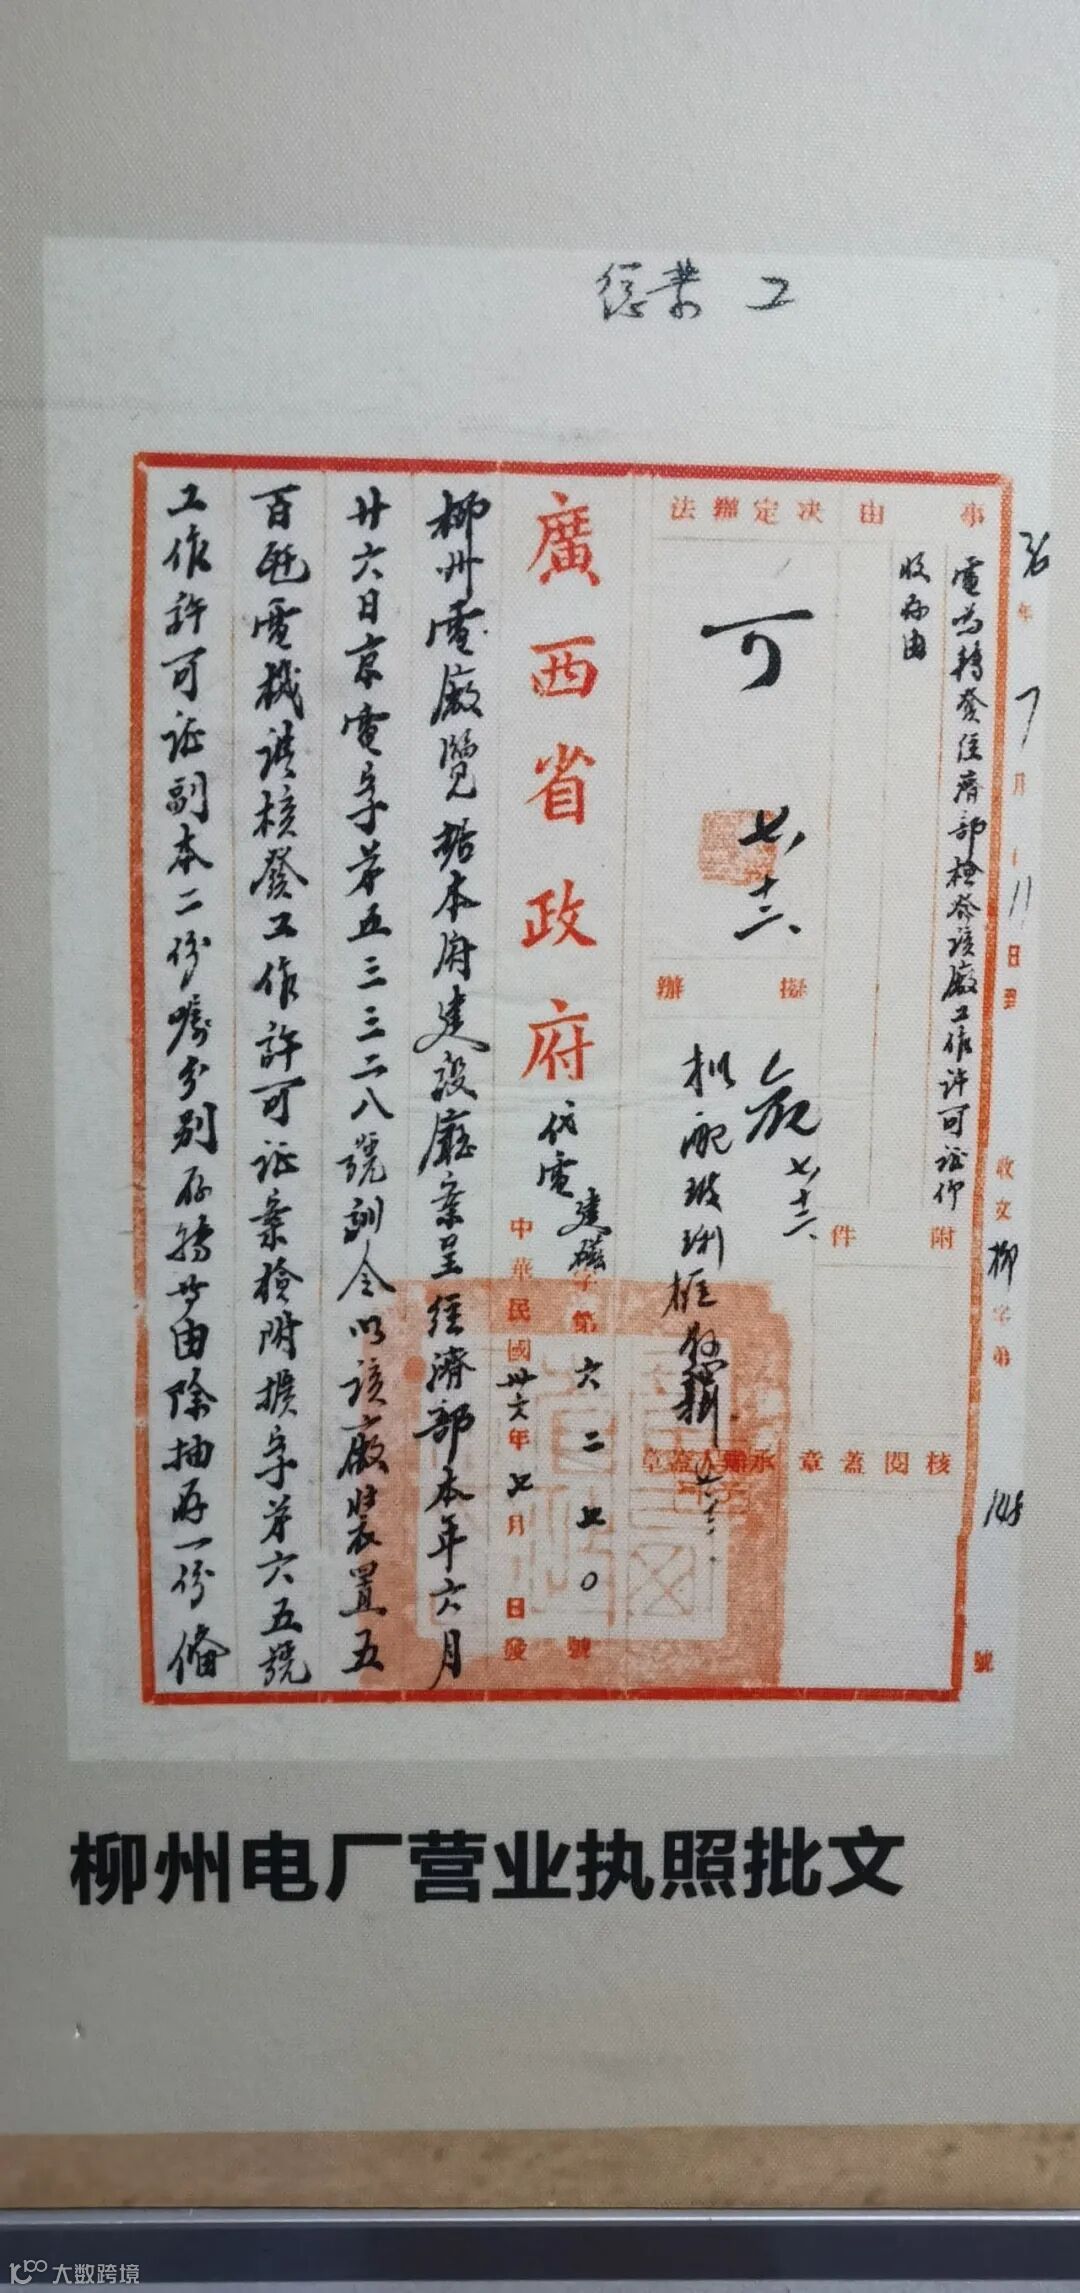 工
36年7月11日到
收文柳字第148號
事由
電為轉發經濟部檢發該廠工作許可証仰
收存由
附件
決定辦法
可
七、十二、
擬辦
七、十二、
核閱蓋章
承辦人蓋章
廣西省政府代電
建 字第六二七〇號
中華民國卅六年七月 日發
柳州電廠覽據本府建設廳案呈經濟部本年六月
廿六日京電字第五三三二八號訓令以該廠裝置五
百瓩電機請核發工作許可証案檢附擴字第六五號
工作許可証副本二份囑分別存轉等由除抽存一份備
柳州电厂营业执照批文
大数跨境